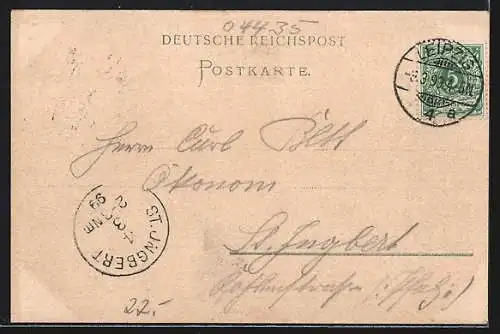 04435
DEUTSCHE REICHSPOST
POSTKARTE.
LEIPZIG
5
4 a
Herrn Carl Bett
Ökonom
St. Ingbert
(: Pfalz :)
ST. INGBERT
99
22.-